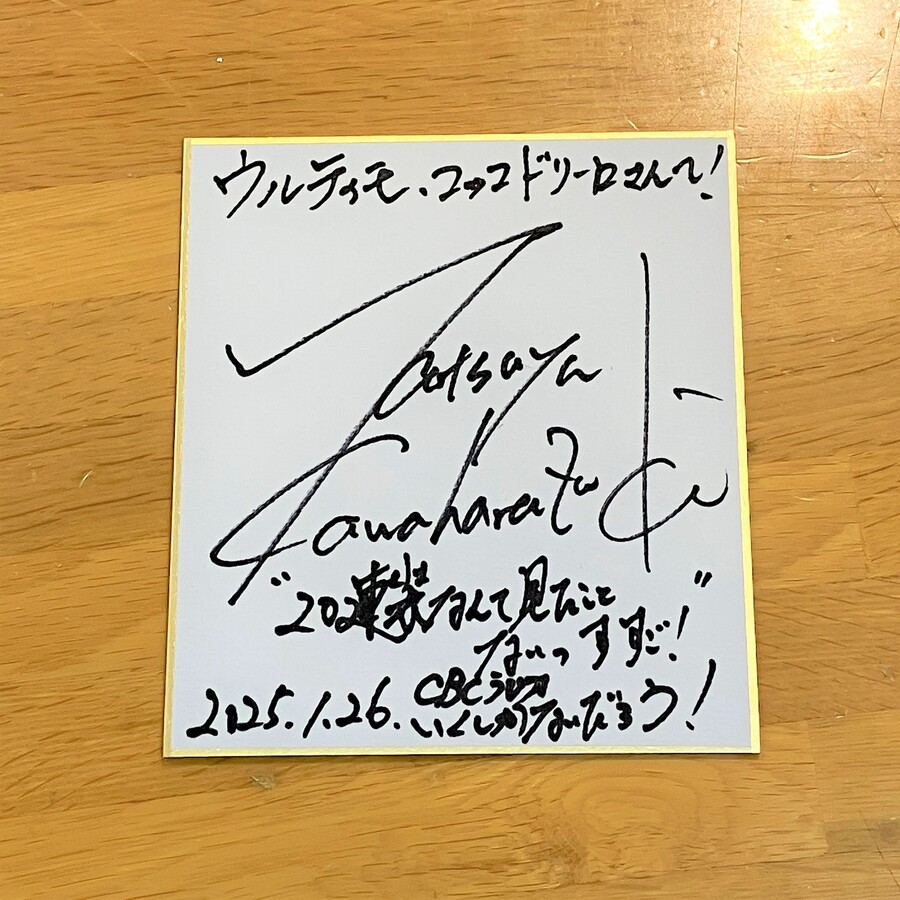 ウルティモ、コッコドリーロさんて!
Tatsuya
Kawaharazuka
"20連装なんて見たこと
ないっすすご!"
2025.1.26. CBCラジオ
いくしかないだろう!